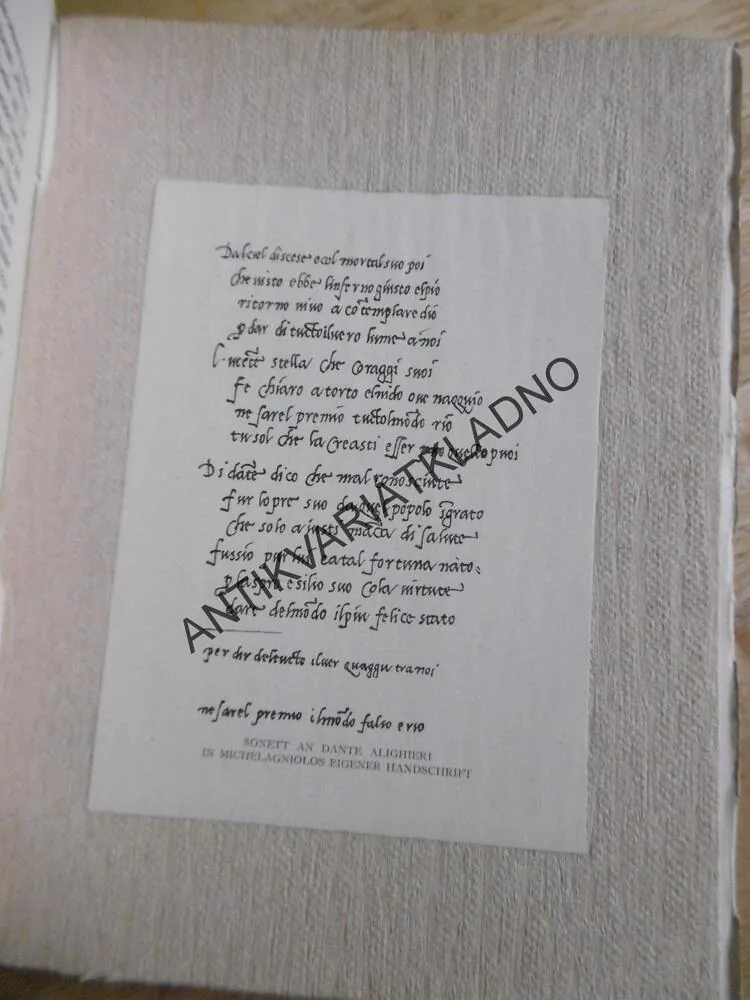 Dalciel discese ecol mortal suo poi
che uisto ebbe linferno giusto elpio
ritorno uiuo a cōtemplare dio
p dar di tuctoiluero lume anoi
lucēte stella che coraggi suoi
fe chiaro atorto elnido oue nacqu'io
ne sarel premio tuctolmōdo rio
tu sol che la creasti esser puoi
Di dāte dico che mal conosciute
fur lopre suo da quel popolo īgrato
che solo aiusti māca di salute
fussio pur lui catal fortuna nato
p laspro esilio suo cola uirtute
dare delmōdo ilpiu felice stato
per dir deltucto iluer quaggiu tranoi
ne sarel premio ilmōdo falso e rio
SONETT AN DANTE ALIGHIERI
IN MICHELAGNIOLOS EIGENER HANDSCHRIFT
ANTIKVARIATKLADNO